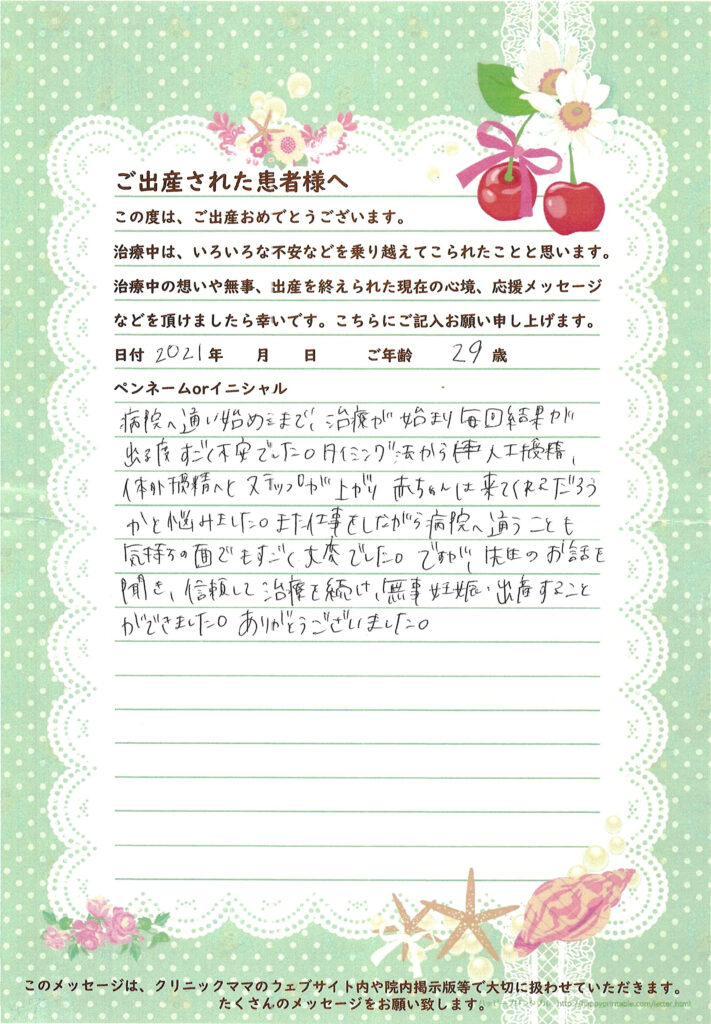 ご出産された患者様へ
この度は、ご出産おめでとうございます。
治療中は、いろいろな不安などを乗り越えてこられたことと思います。
治療中の想いや無事、出産を終えられた現在の心境、応援メッセージ
などを頂けましたら幸いです。こちらにご記入お願い申し上げます。
日付 2021年　月　日　ご年齢 29 歳
ペンネームorイニシャル
病院へ通い始めるまで、治療が始まり毎回結果が
出る度すごく不安でした。タイミング法から 人工授精、
体外授精へと ステップが上がり 赤ちゃんは来てくれるだろう
かと悩みました。また仕事をしながら病院へ通うことも
気持ちの面でもすごく大変でした。ですが、先生のお話を
聞き、信頼して治療を続け、無事妊娠・出産すること
ができました。ありがとうございました。
このメッセージは、クリニックママのウェブサイト内や院内掲示版等で大切に扱わせていただきます。
たくさんのメッセージをお願い致します。
ハッピープリンタブル http://happyprintable.com/letter.html